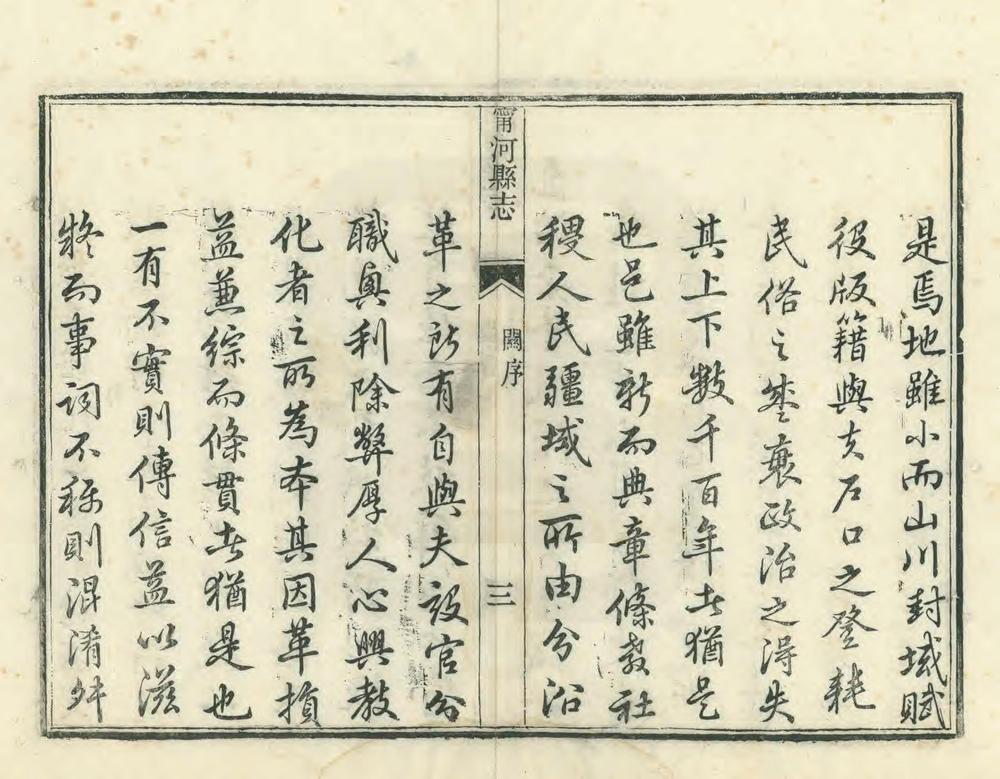 是焉地雖小而山川封域賦
役版籍與夫戶口之登耗
民俗之盛衰政治之得失
其上下數千百年者猶是
也邑雖新而典章條教社
稷人民疆域之所由分沿
甯河縣志
關序
三
革之所有自與夫設官分
職興利除弊厚人心興教
化者之所為本其因革損
益兼綜而條貫者猶是也
一有不實則傳信益以滋
疑而事詞不稱則混淆舛